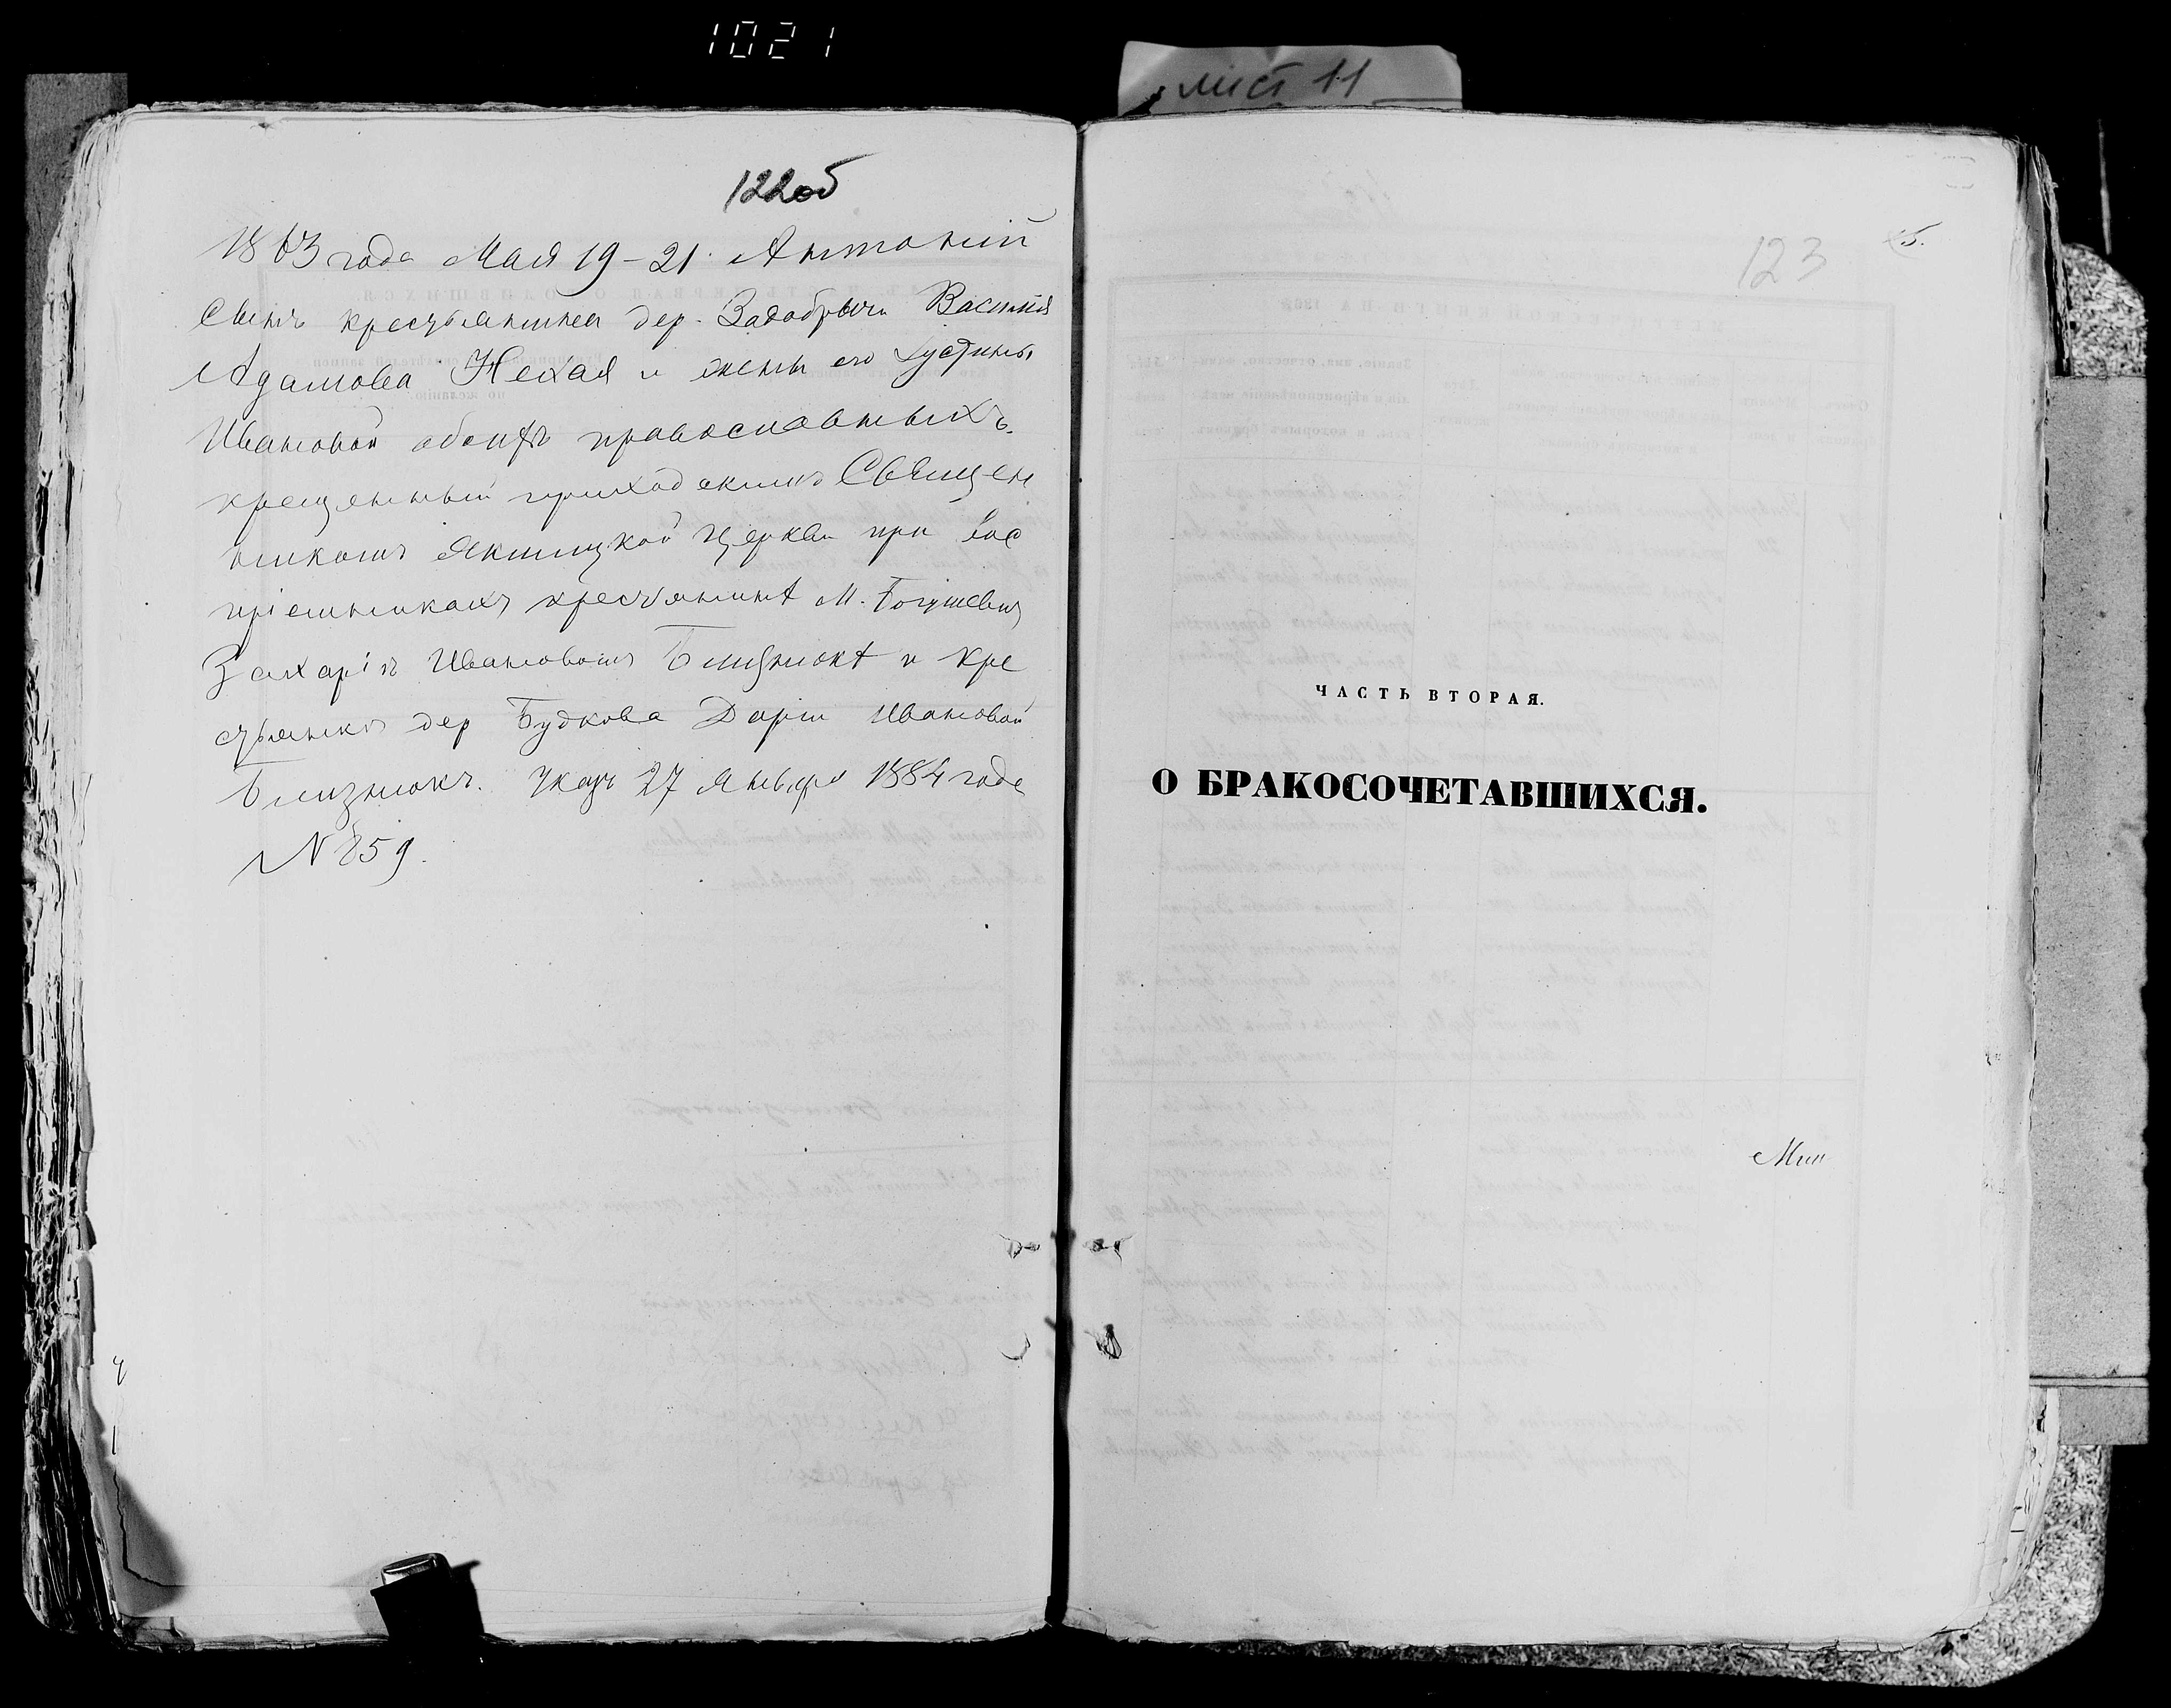 1021
лист 11
122об
1863 года Мая 19-21. Антоній
сынъ крестьянина дер. Задобрычи Василія
Адамова Нехая и жены его Іустины
Ивановой обоихъ православныхъ.
крещенный приходскимъ Священ
никомъ Якшицкой Церкви при вос
пріемникахъ крестьянинѣ М. Богушевич
Захаріѣ Ивановомъ Близнюкѣ и кре
стьянкѣ дер Будкова Даріи Ивановой
Близнюкъ. Указъ 27 Января 1884 года
№ 859.
123
5.
ЧАСТЬ ВТОРАЯ.
О БРАКОСОЧЕТАВШИХСЯ.
Мин